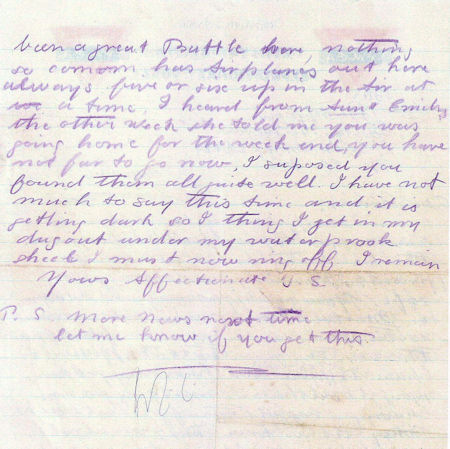 been a great Battle here, nothing
so comom has Airplanes out here
always five or six up in the Air at
a time, I heard from Aunt Emily
the other week she told me you was
going home for the week end, you have
not far to go now, I suposed you
found them all quite well. I have not
much to say this time and it is
getting dark so I thing I get in my
dug out under my water prook
sheet I must now ring off I remain
Yours Affectionate S.
P. S. More News next time
let me know if you get this.